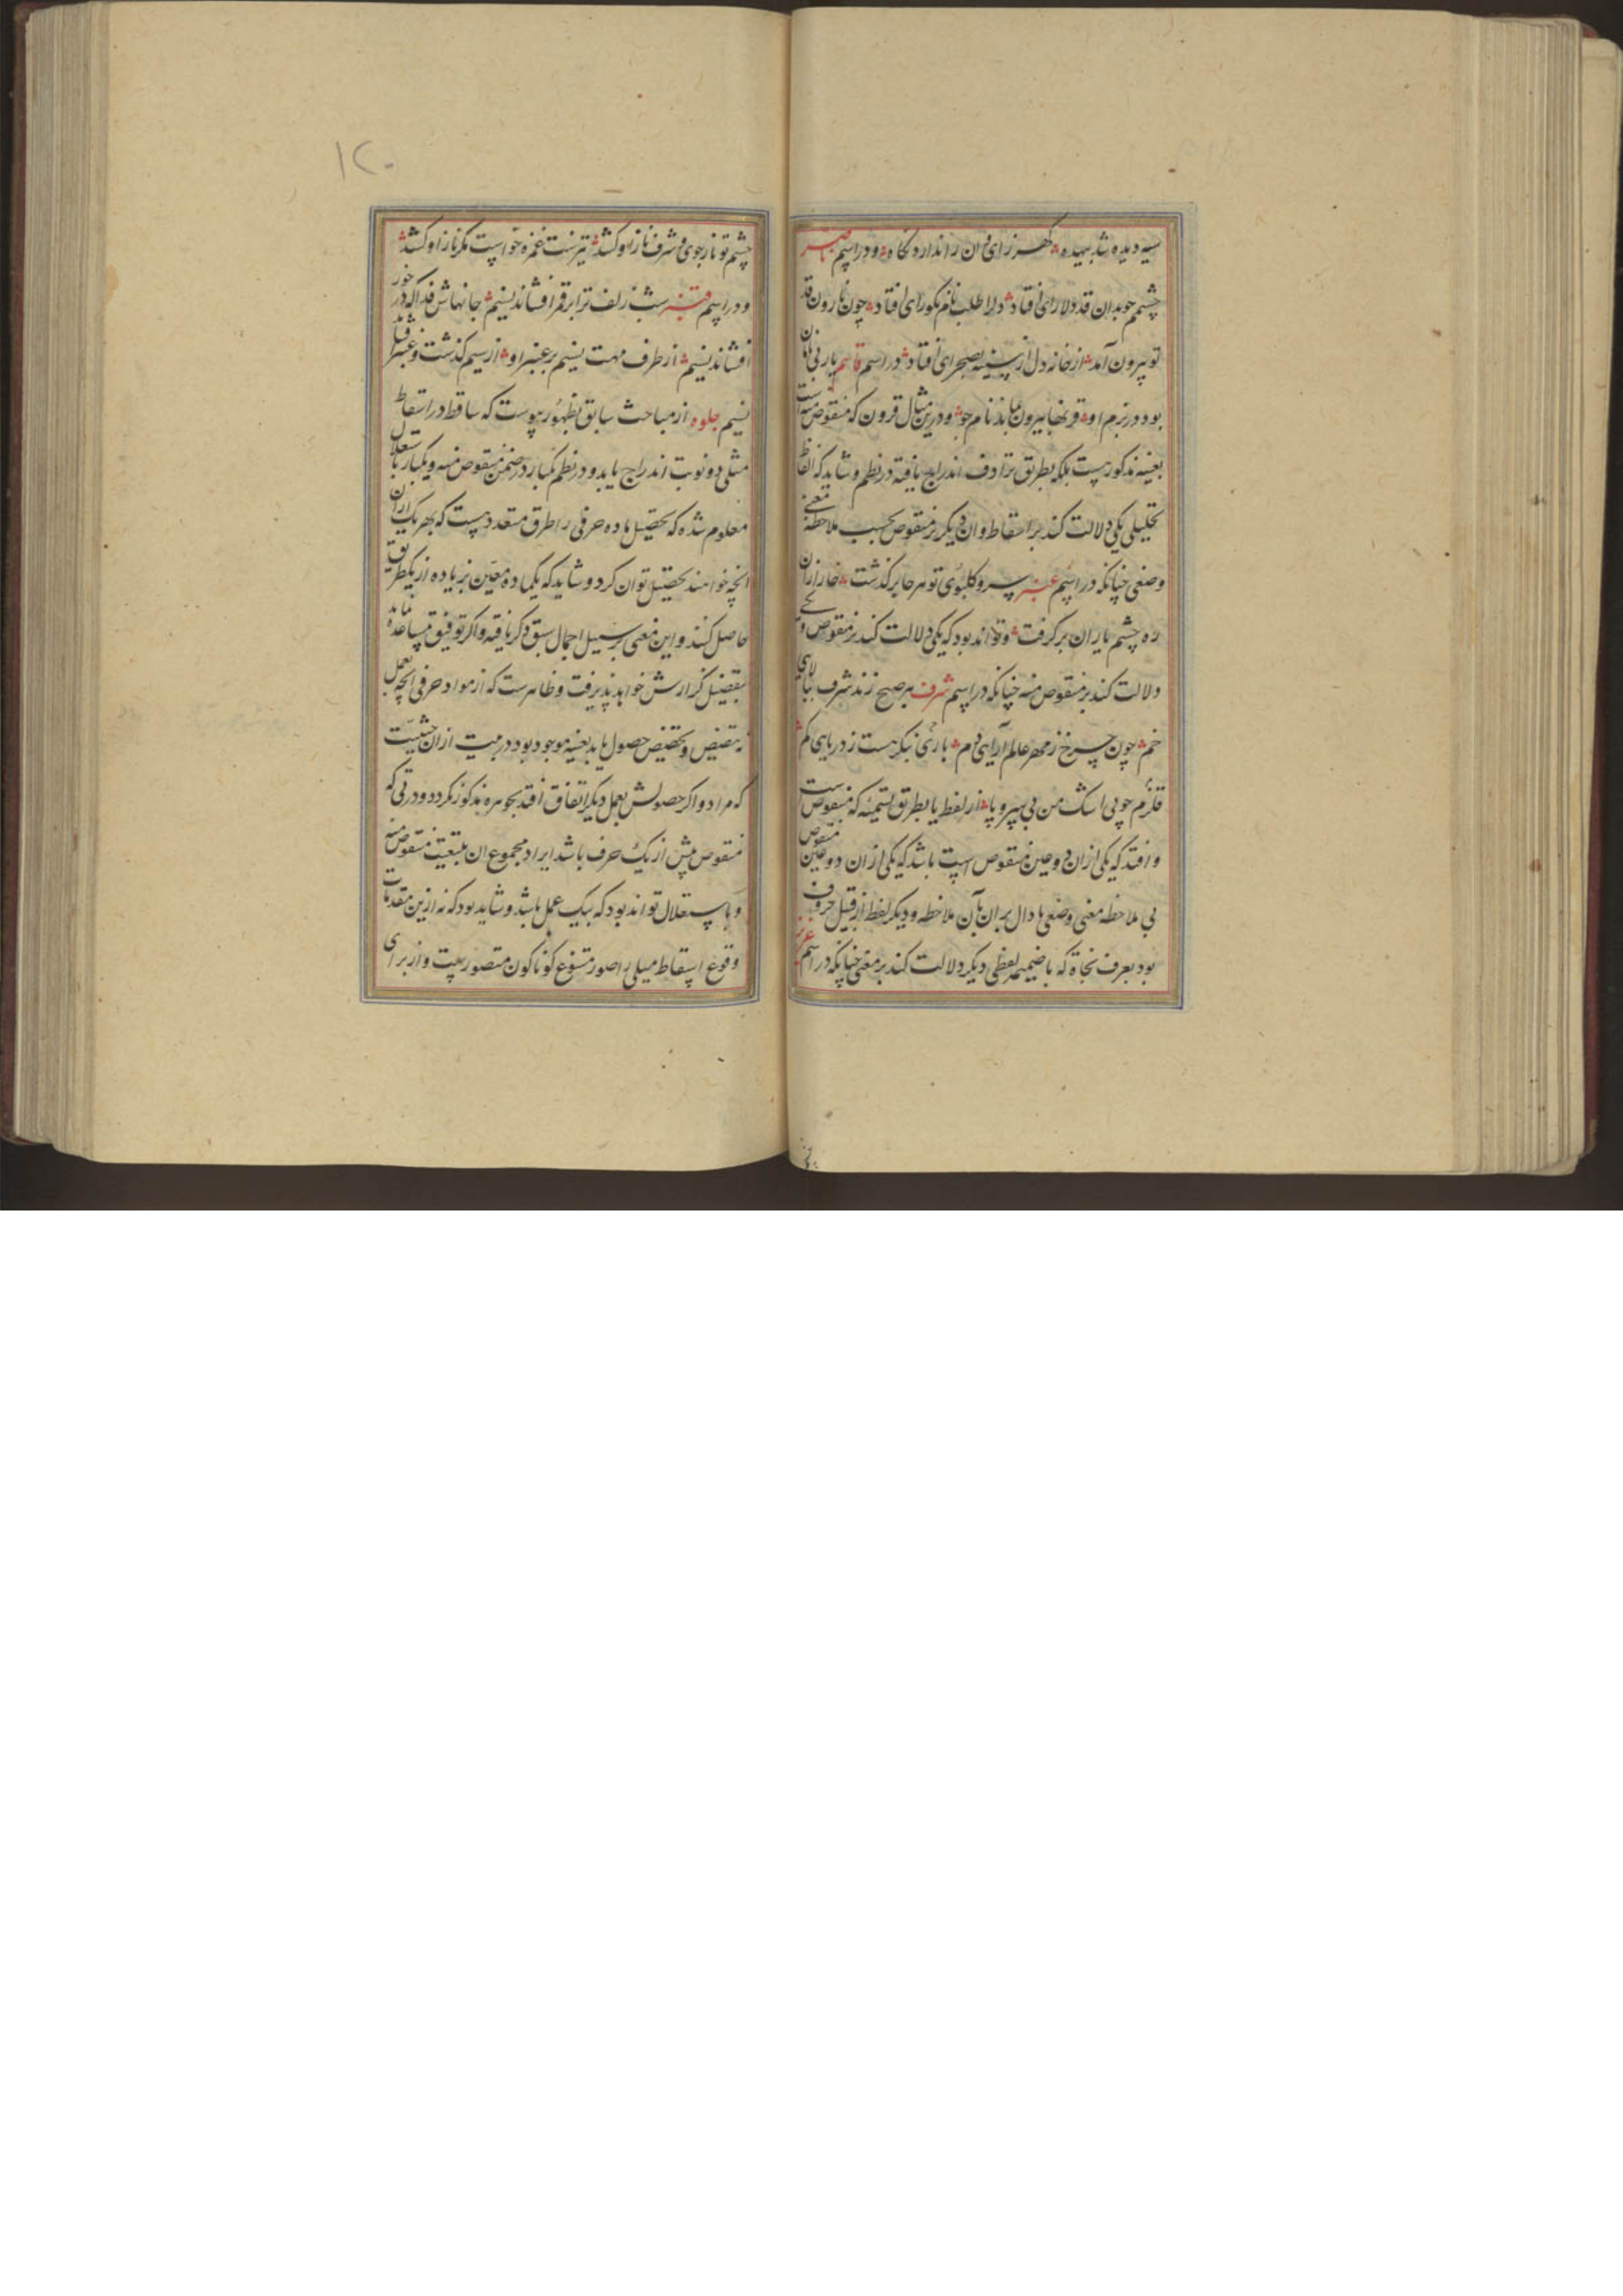 سیه دیده شد بیهده کهر زای آن را ندارد نگاه و در اسم
چشمم چو بدان قد دلارای افتاد دل را طلب نام نکورای افتاد چون نارون قد
تو بیرون آمد از خانه دل از سینه بصحرای افتاد در اسم قاسم یار بی
بود در بزم او بیرون نام جو و درین مثال قرون که منقوص منه است
بعینه مذکور نیست بلکه بطریق ترادف اندراج یافته در نظم و شاید که الفاظ
تحلیلی یکی دلالت کند بر اسقاط و ان دیگر بر منقوص بحسب ملاحظه معنی
وضعی چنانکه در اسم عنبر سر و کلبوی تو هر جا بر گذشت خار از ان
ره چشم یاران بر گرفت و تواند بود که یکی دلالت کند بر منقوص و یکی
دلالت کند بر منقوص منه چنانکه در اسم شرف بر صبح زند شرف ببالای
خم چون چرخ ز مهر عالم آرای دم باری نیکر هست ز دریای کم
قلزم چو پی اشک من بی سر و پا از لفظ یا بطریق تسمیه که منقوص است
و افتد که یکی از ان دو عین منقوص است باشد که یکی از ان دو عین منقوص
بی ملاحظه معنی وضعی با دال بر ان بآن ملاحظه و دیگر لفظ از قبیل حروف
بود بعرف نحاة که با ضمیمه لفظی دیگر دلالت کند بر معنی چنانکه در اسم
۱۲۰
چشم تو ناز جوی و شرف ناز او کشد تیرست غمزه خواست مگر ناز او کشد
و در اسم قنبر شب زلف ترا بر قمر افشاند نسیم جانهاش فدا که در خور
افشاند نسیم از طرف مهت نسیم بر عنبر او از سیم گذشت و عنبر افشاند
نسیم جلوه از مباحث سابق بظهور پیوست که ساقط در اسقاط
مثلی دو نوبت اندراج یابد و در نظم یکبار در ضمن منقوص منه و یکبار باستقلال
معلوم شده که تحصیل ماده حرفی را طرق متعددست که بهر یک از ان
انچه خواهند تحصیل توان کرد و شاید که یکماده معین بزیاده از یکطریق
حاصل کنند و این معنی بر سبیل اجمال سبق ذکر یافته و اگر توفیق مساعده نماید
بتفصیل گزارش خواهد پذیرفت و ظاهرست که از مواد حرفی انچه بعمل
تنصیص و تخصیص حصول یابد بعینه موجود بود در بیت از ان حیثیت
که مراد و اگر حصولش بعمل دیگر اتفاق افتد بجوهره مذکور نگردد و در بیتی که
منقوص بیش از یک حرف باشد ایراد مجموع ان بتبعیت منقوص منه
و باستقلال تواند بود که بیک عمل باشد و شاید بود که نه ازین مقدمات
وقوع اسقاط مثلی را صور متنوع گوناگون متصورست و از برای